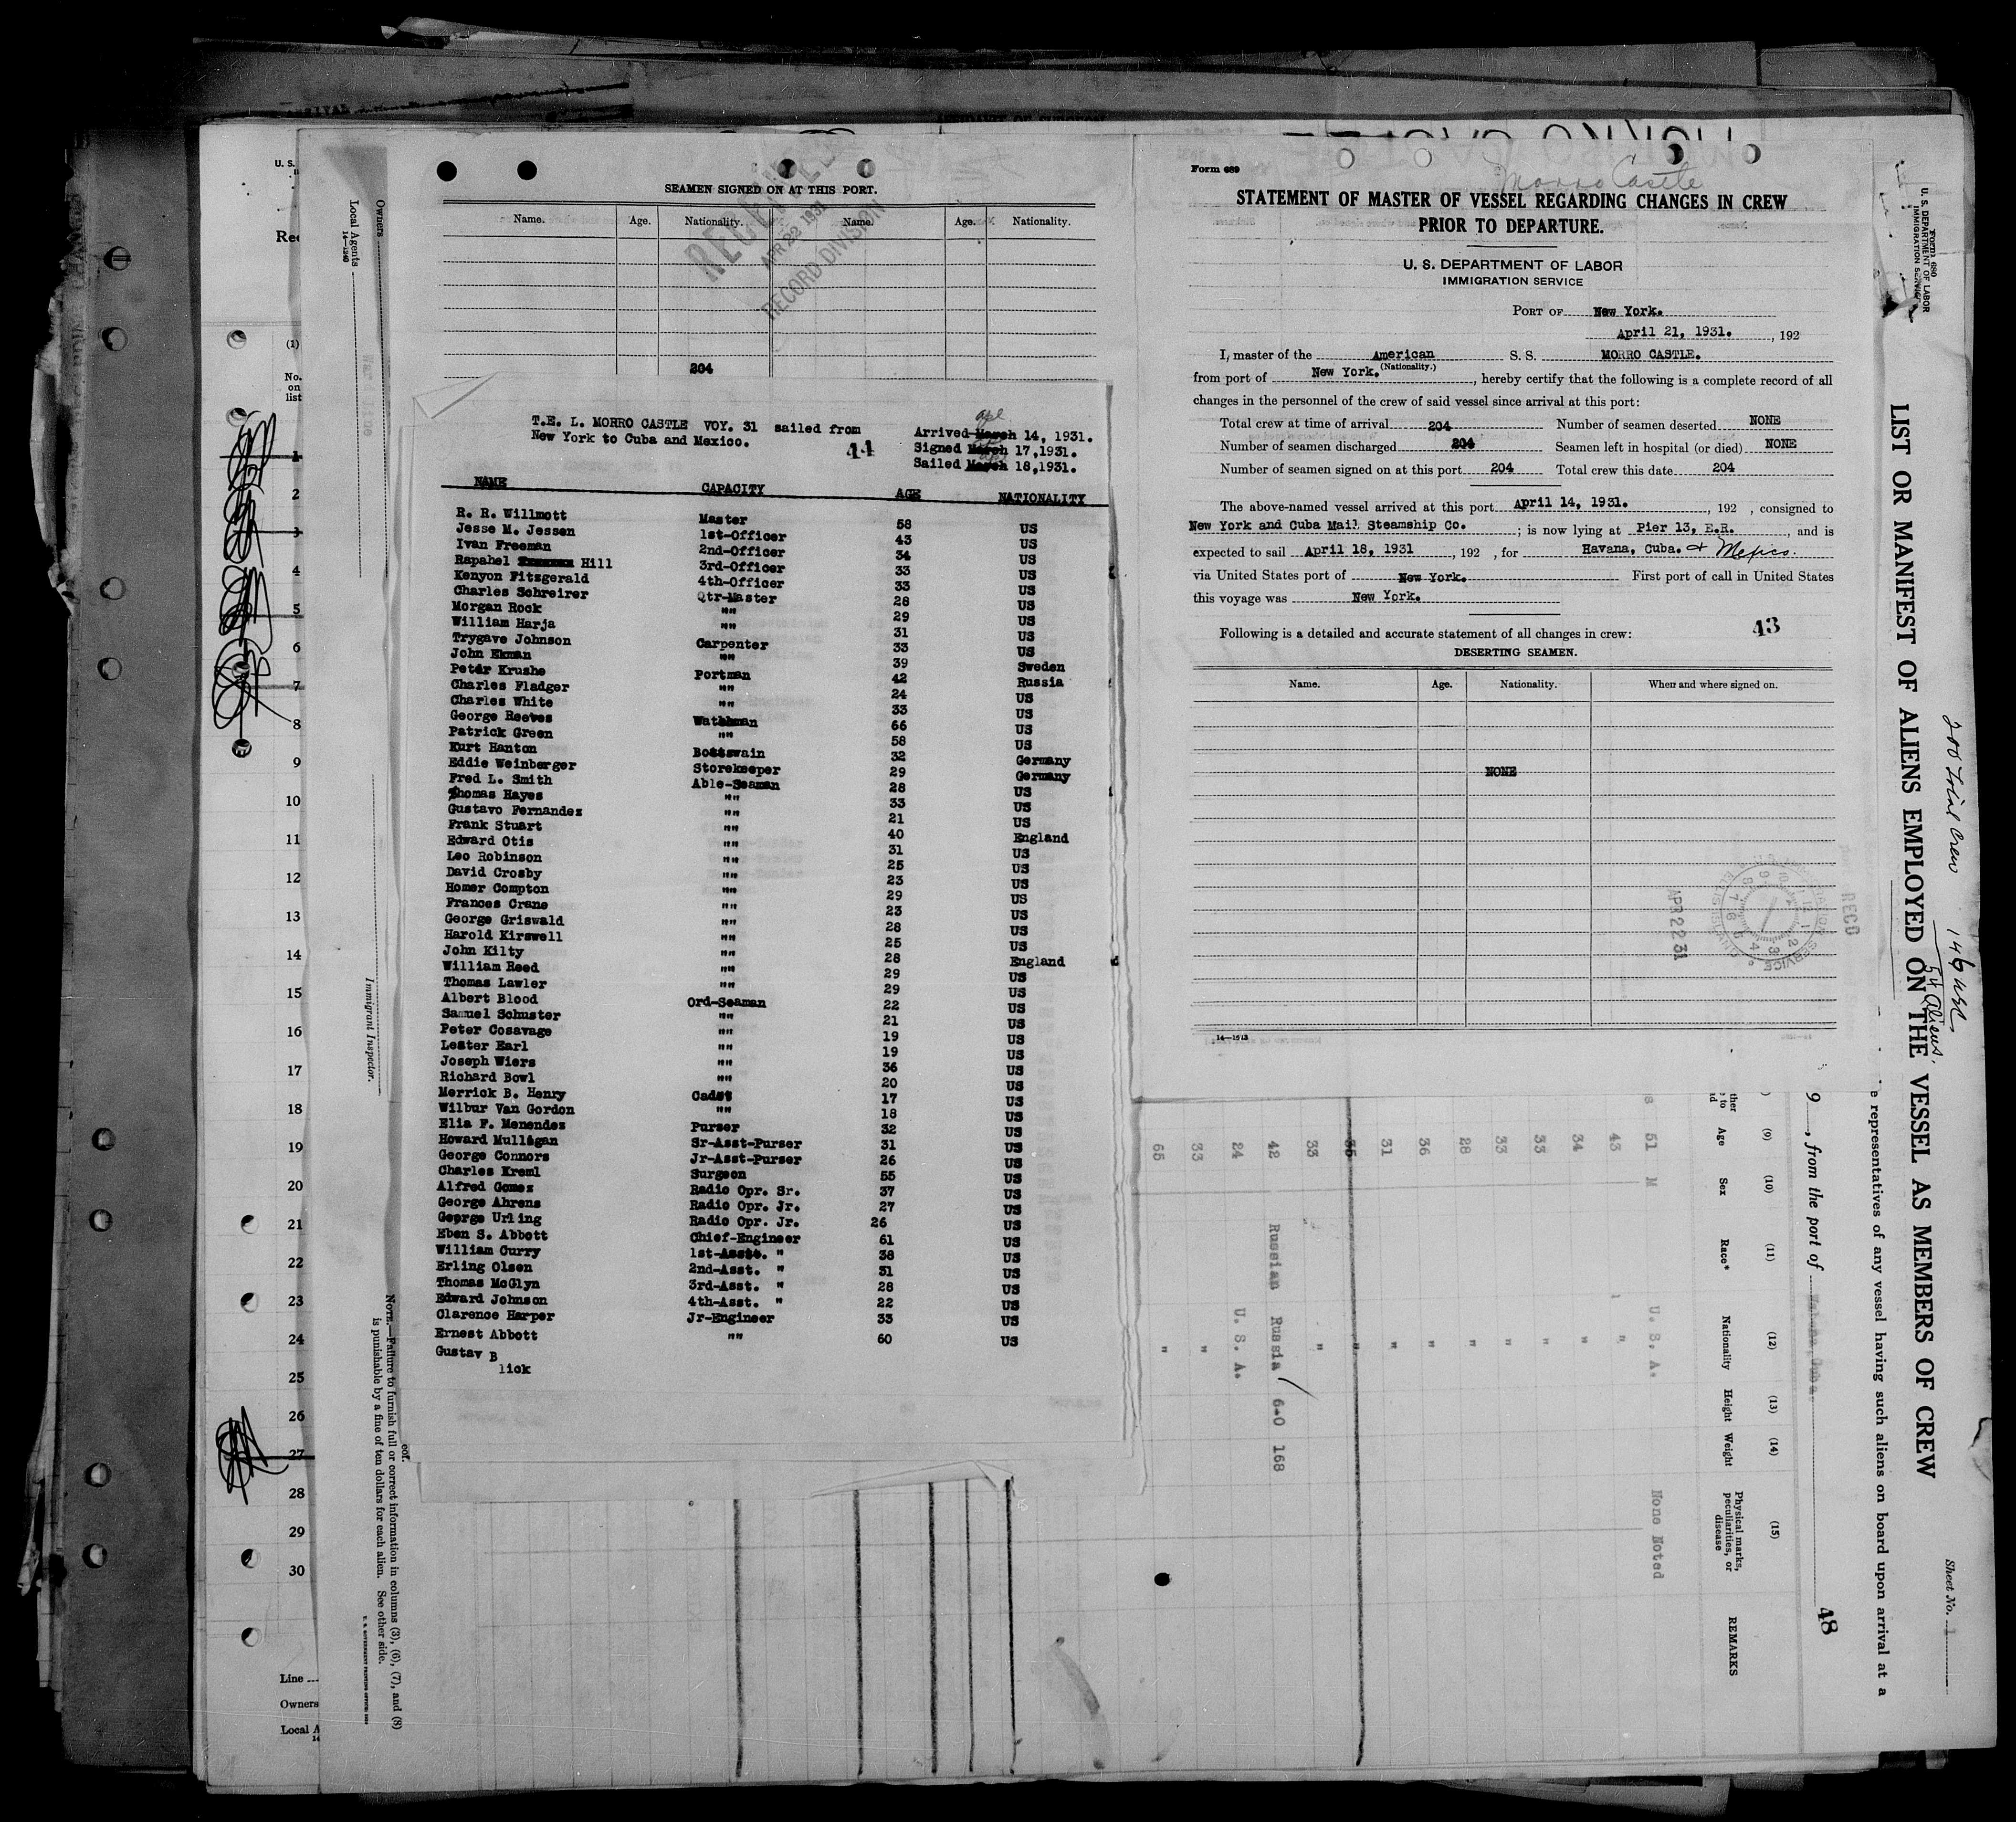 SEAMEN SIGNED ON AT THIS PORT.
Name. Age. Nationality. Name. Age. Nationality.
RECEIVED
APR 22 1931
RECORD DIVISION
204
T.E. L. MORRO CASTLE VOY. 31 sailed from
New York to Cuba and Mexico.
44
apl
Arrived March 14, 1931.
Signed March 17,1931.
Sailed March 18,1931.
NAME CAPACITY AGE NATIONALITY
R. R. Willmott Master 58 US
Jesse M. Jessen 1st-Officer 43 US
Ivan Freeman 2nd-Officer 34 US
Rapahel Hill 3rd-Officer 33 US
Kenyon Fitzgerald 4th-Officer 33 US
Charles Schreirer Qtr-Master 28 US
Morgan Rock "" 29 US
William Harja "" 31 US
Trygave Johnson Carpenter 33 US
John Ekman "" 39 Sweden
Peter Krushe Portman 42 Russia
Charles Fladger "" 24 US
Charles White "" 33 US
George Reeves Watchman 66 US
Patrick Green "" 58 US
Kurt Hanton Boatswain 32 Germany
Eddie Weinberger Storekeeper 29 Germany
Fred L. Smith Able-Seaman 28 US
Thomas Hayes "" 33 US
Gustavo Fernandez "" 21 US
Frank Stuart "" 40 England
Edward Otis "" 31 US
Leo Robinson "" 25 US
David Crosby "" 23 US
Homer Compton "" 29 US
Frances Crane "" 23 US
George Griswald "" 28 US
Harold Kirswell "" 25 US
John Kilty "" 28 England
William Reed "" 29 US
Thomas Lawler "" 29 US
Albert Blood Ord-Seaman 22 US
Samuel Schuster "" 21 US
Peter Cosavage "" 19 US
Lester Earl "" 19 US
Joseph Wiers "" 36 US
Richard Bowl "" 20 US
Merrick B. Henry Cadet 17 US
Wilbur Van Gordon "" 18 US
Elia F. Menendez Purser 32 US
Howard Mulligan Sr-Asst-Purser 31 US
George Connors Jr-Asst-Purser 26 US
Charles Kreml Surgeon 55 US
Alfred Gomez Radio Opr. Sr. 37 US
George Ahrens Radio Opr. Jr. 27 US
George Urling Radio Opr. Jr. 26 US
Eben S. Abbott Chief-Engineer 61 US
William Curry 1st-Asst. " 38 US
Erling Olsen 2nd-Asst. " 31 US
Thomas McGlyn 3rd-Asst. " 28 US
Edward Johnson 4th-Asst. " 22 US
Clarence Harper Jr-Engineer 33 US
Ernest Abbott "" 60 US
Gustav B
lick
Form 689
Morro Castle
STATEMENT OF MASTER OF VESSEL REGARDING CHANGES IN CREW
PRIOR TO DEPARTURE.
U. S. DEPARTMENT OF LABOR
IMMIGRATION SERVICE
PORT OF New York.
April 21, 1931. , 192
I, master of the American S. S. MORRO CASTLE.
(Nationality.)
from port of New York. , hereby certify that the following is a complete record of all
changes in the personnel of the crew of said vessel since arrival at this port:
Total crew at time of arrival 204 Number of seamen deserted NONE
Number of seamen discharged 204 Seamen left in hospital (or died) NONE
Number of seamen signed on at this port 204 Total crew this date 204
The above-named vessel arrived at this port April 14, 1931. , 192 , consigned to
New York and Cuba Mail Steamship Co. ; is now lying at Pier 13, E.R. , and is
expected to sail April 18, 1931 , 192 , for Havana, Cuba. & Mexico.
via United States port of New York. First port of call in United States
this voyage was New York.
43
Following is a detailed and accurate statement of all changes in crew:
DESERTING SEAMEN.
Name. Age. Nationality. When and where signed on.
NONE
APR 22 31
RECD
14—1513
Form 680
U. S. DEPARTMENT OF LABOR
IMMIGRATION SERVICE
LIST OR MANIFEST OF ALIENS EMPLOYED ON THE VESSEL AS MEMBERS OF CREW
200 Total Crew
54 Aliens.
Sheet No. 1
e representatives of any vessel having such aliens on board upon arrival at a
9 , from the port of Habana, Cuba.
48
(9) (10) (11) (12) (13) (14) (15)
Age Sex Race* Nationality Height Weight Physical marks, peculiarities, or disease REMARKS
51 M U. S. A. None Noted
43 "
34 "
33 "
33 "
28 "
36 "
31 "
35 "
33 "
42 Russian Russia 6-0 168
24 U. S. A.
33 "
65 "
U. S.
Rec
(1)
No. on list
1
2
3
4
5
6
7
8
9
10
11
12
13
14
15
16
17
18
19
20
21
22
23
24
25
26
27
28
29
30
Line
Owners
Local A
Owners
Local Agents
14—1240
War Line
Immigrant Inspector.
NOTE.—Failure to furnish full or correct information in columns (3), (6), (7), and (8)
is punishable by a fine of ten dollars for each alien. See other side.